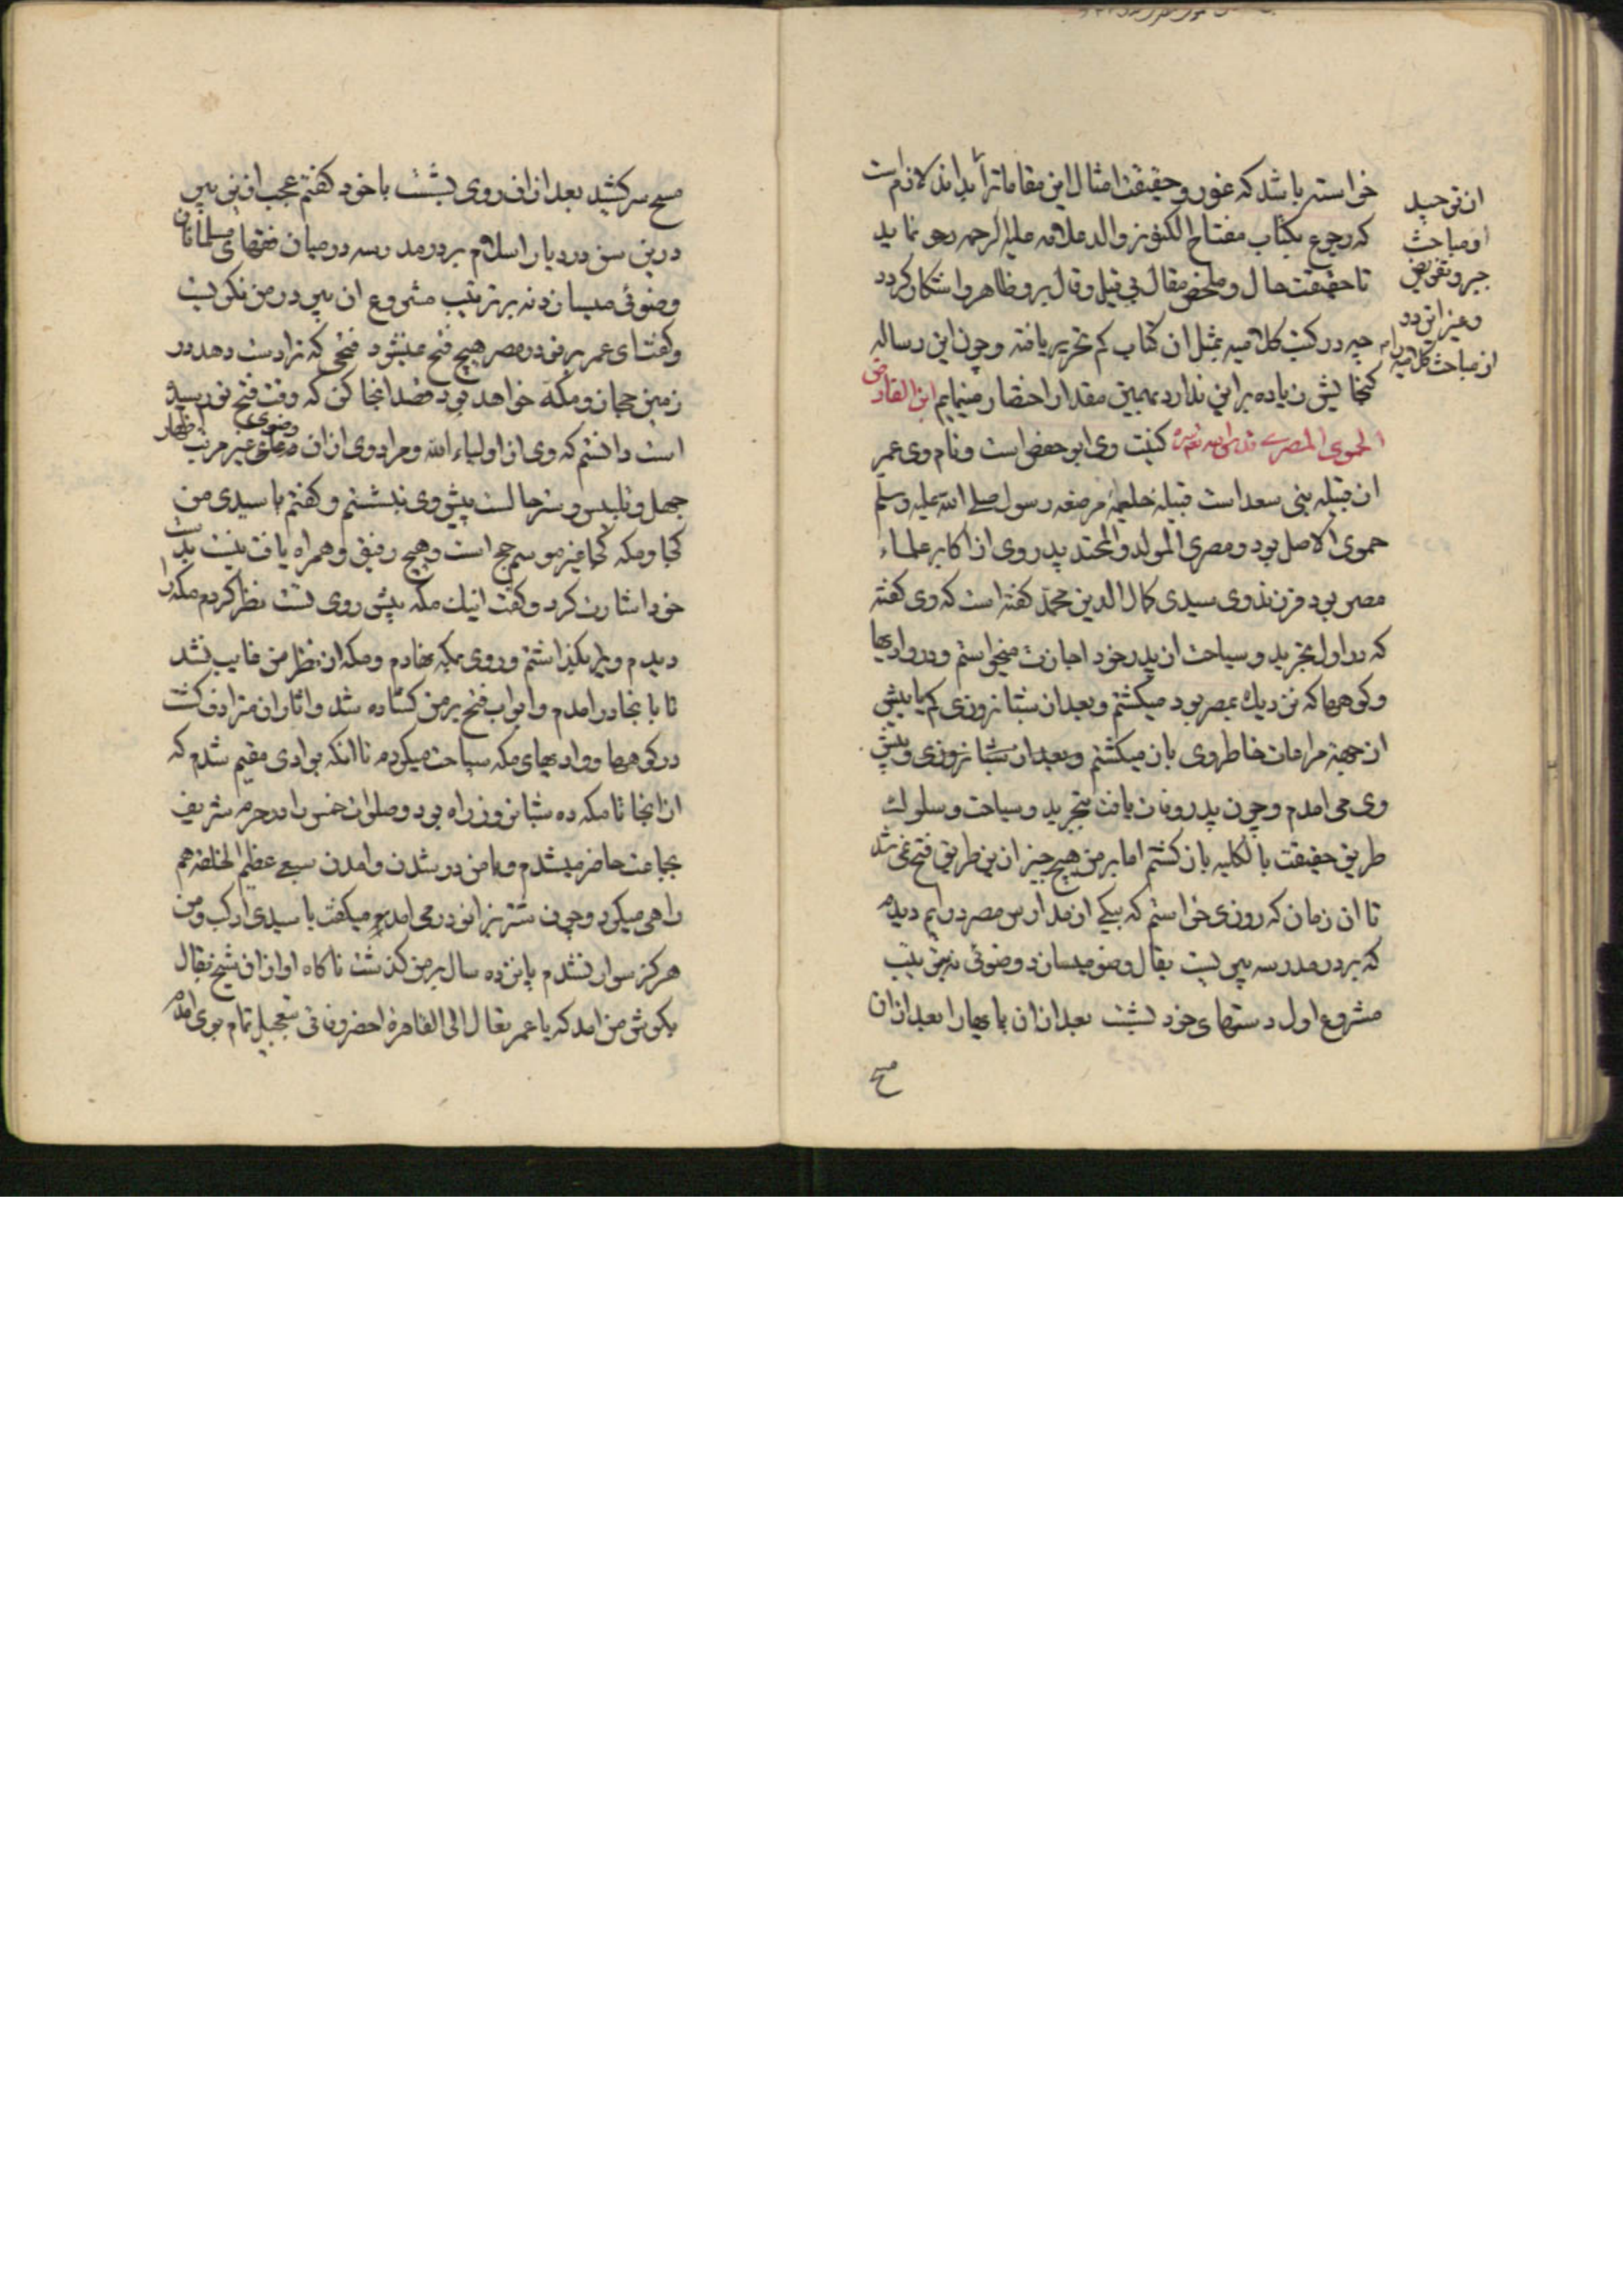 خواسته باشد که غور و حقیقت امثال این مقاماترا بداند لازم است
که رجوع بکتاب مفتاح الکنوز والد علامه علیه الرحمه رجوع نماید
تا حقیقت حال و ملخص مقال بی قیل و قال برو ظاهر و اشکار کردد
چه در کتب کلامیه بمثل ان کتاب کم تحریر یافته و چون این رساله
کنجایش زیاده بر این ندارد بهمین مقدار اختصار مینمایم ابن الفارض
الحموی المصری قدس الله سره کنیت وی ابو حفص است و نام وی عمر
از قبیله بنی سعد است قبیلهٔ حلیمهٔ مرضعه رسول صلی الله علیه وسلم
حموی الاصل بود و مصری المولد والمحتد پدر وی از اکابر علماء
مصر بود فرزند وی سیدی کمال الدین محمد کفته است که وی کفته
که در اول تجرید و سیاحت از پدر خود اجازت میخواستم و در وادیها
و کوهها که نزدیک بمصر بود میکشتم و بعد از شبانروزی کم یا بیش
از جهة مراعات خاطر وی باز میکشتم و بعد از شبانروزی و پیش
وی می امدم و چون پدر وفات یافت بتجرید و سیاحت و سلوک
طریق حقیقت بالکلیه باز کشتم اما بر من هیچ چیز ازین طریق فتح نمی شد
تا ان زمان که روزی خواستم که بیکی از مدارس مصر درایم دیدم
که بر در مدرسه پیریست بقال وضو میسازد وضوئی نه بترتیب
مشروع اول دستهای خود بشست بعد ازان پایهارا بعد ازان
مسح
از توحید
و مباحث
جبر و تفویض
و غیر این دو
از مباحث کلامیه را
مسح سر کشید بعد ازان روی بشست با خود کفتم عجب ازین پیر
درین سن در دیار اسلام بر در مدرسه در میان فقهای مسلمانان
وضوئی میسازد نه بر ترتیب مشروع ان پیر در من نکریست
و کفت ای عمر بر تو در مصر هیچ فتح نمیشود فتحی که ترا دست دهد در
زمین حجاز و مکه خواهد بود قصد انجا کن که وقت فتح تو رسیده
است دانستم که وی از اولیاء الله و مراد وی ازان وضوی غیر مرتب اظهار
جهل و تلبیس و ستر حالست پیش وی بنشستم و کفتم یا سیدی من
کجا و مکه کجا غیر موسم حج است و هیچ رفیق و همراه یافت نیست بدست
خود اشارت کرد و کفت اینک مکه پیش روی تست نظر کردم مکه را
دیدم ویرا بکذاشتم و روی بمکه نهادم و مکه از نظر من غایب نشد
تا بانجا در امدم و ابواب فتح بر من کشاده شد و اثار ان مترادف کشت
در کوهها و وادیهای مکه سیاحت میکردم تا انکه بوادی مقیم شدم که
از انجا تا مکه ده شبانروز راه بود و صلوات خمس را در حرم شریف
بجماعت حاضر میشدم و با من در شدن و امدن سبعی عظیم الخلقه هم
راهی میکرد و چون شتر بزانو در می امد و میکفت یا سیدی ارکب و من
هرکز سوار نشدم پانزده سال بر من کذشت ناکاه اواز ان شیخ بقال
بکوش من امد که یا عمر تعال الی القاهرة احضر وفاتی بتعجیل تمام بوی امدم